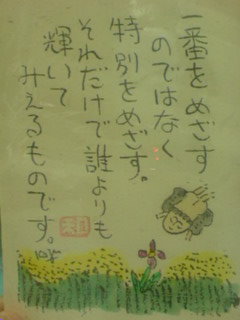 一番をめざす
のではなく
特別をめざす。
それだけで誰よりも
輝いて
みえるものです。